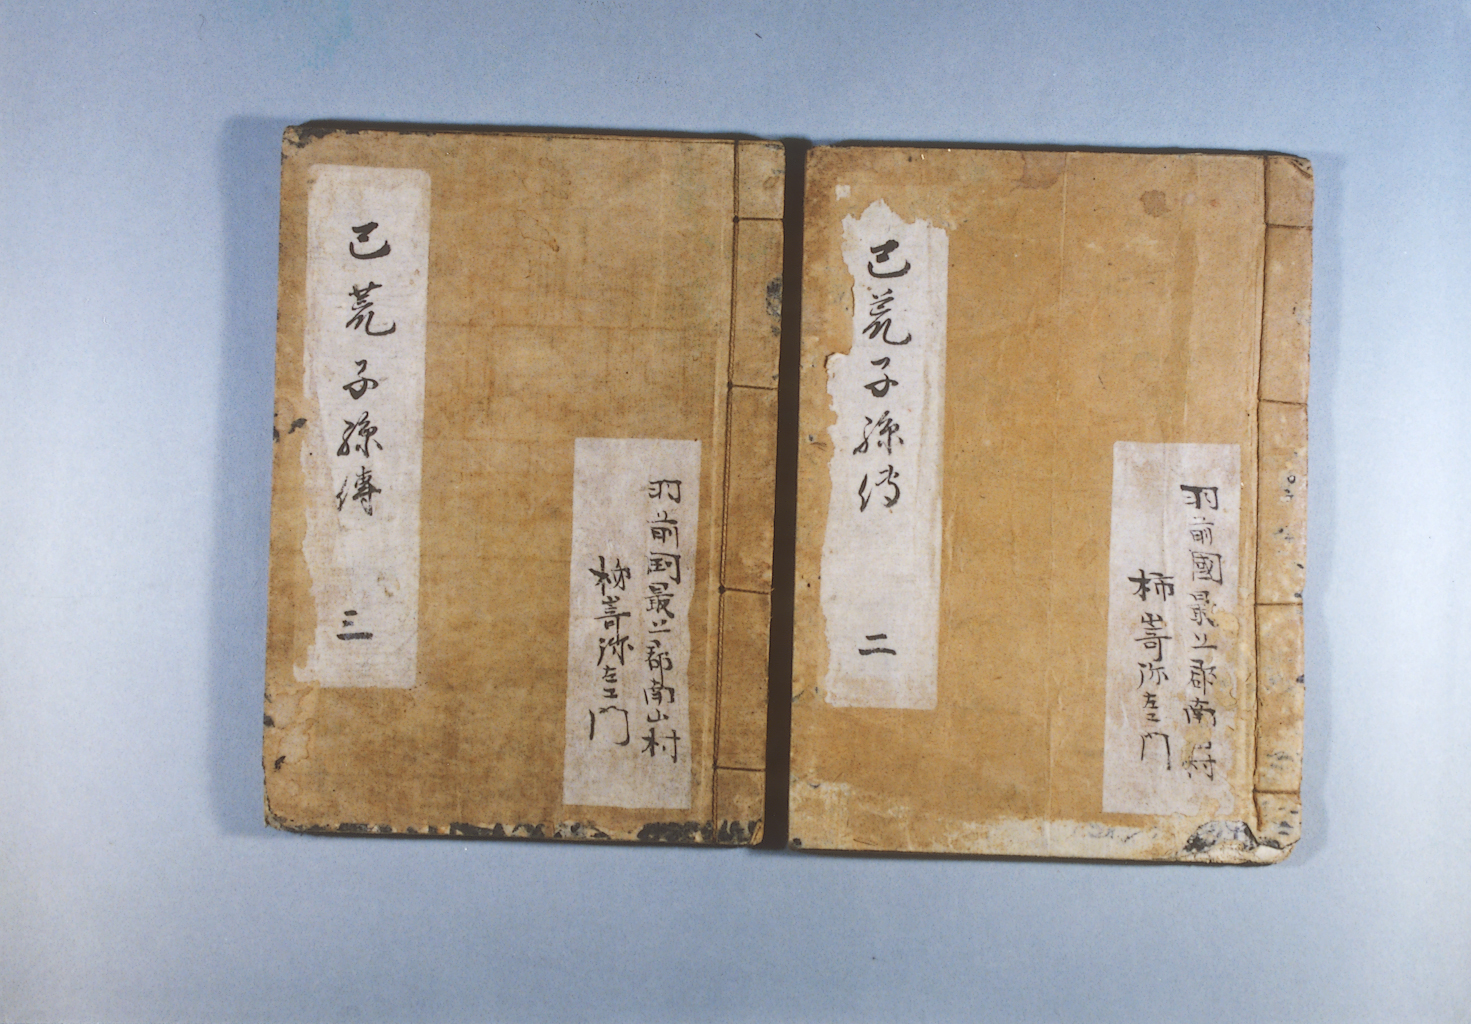 羽前國最上郡南山村
柿嵜弥左エ門
巳荒子孫傳 二
羽前国最上郡南山村
柿嵜弥左エ門
巳荒子孫傳 三